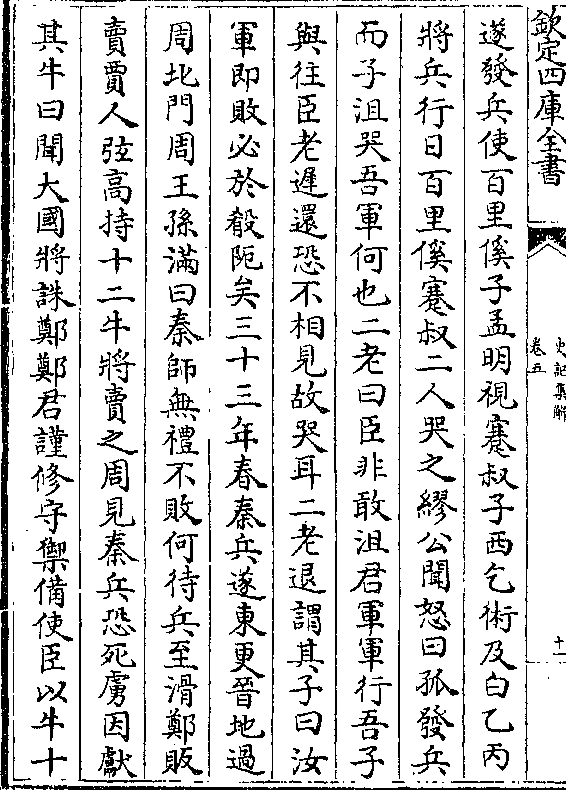 欽定四庫全書
史記集解
卷五
十一
遂發兵使百里傒子孟明視蹇叔子西乞術及白乙丙
將兵行日百里傒蹇叔二人哭之繆公聞怒曰孤發兵
而子沮哭吾軍何也二老曰臣非敢沮君軍軍行吾子
與往臣老遲還恐不相見故哭耳二老退謂其子曰汝
軍即敗必於殽阨矣三十三年春秦兵遂東更晉地過
周北門周王孫滿曰秦師無禮不敗何待兵至滑鄭販
賣賈人弦高持十二牛將賣之周見秦兵恐死虜因獻
其牛曰聞大國將誅鄭鄭君謹修守禦備使臣以牛十